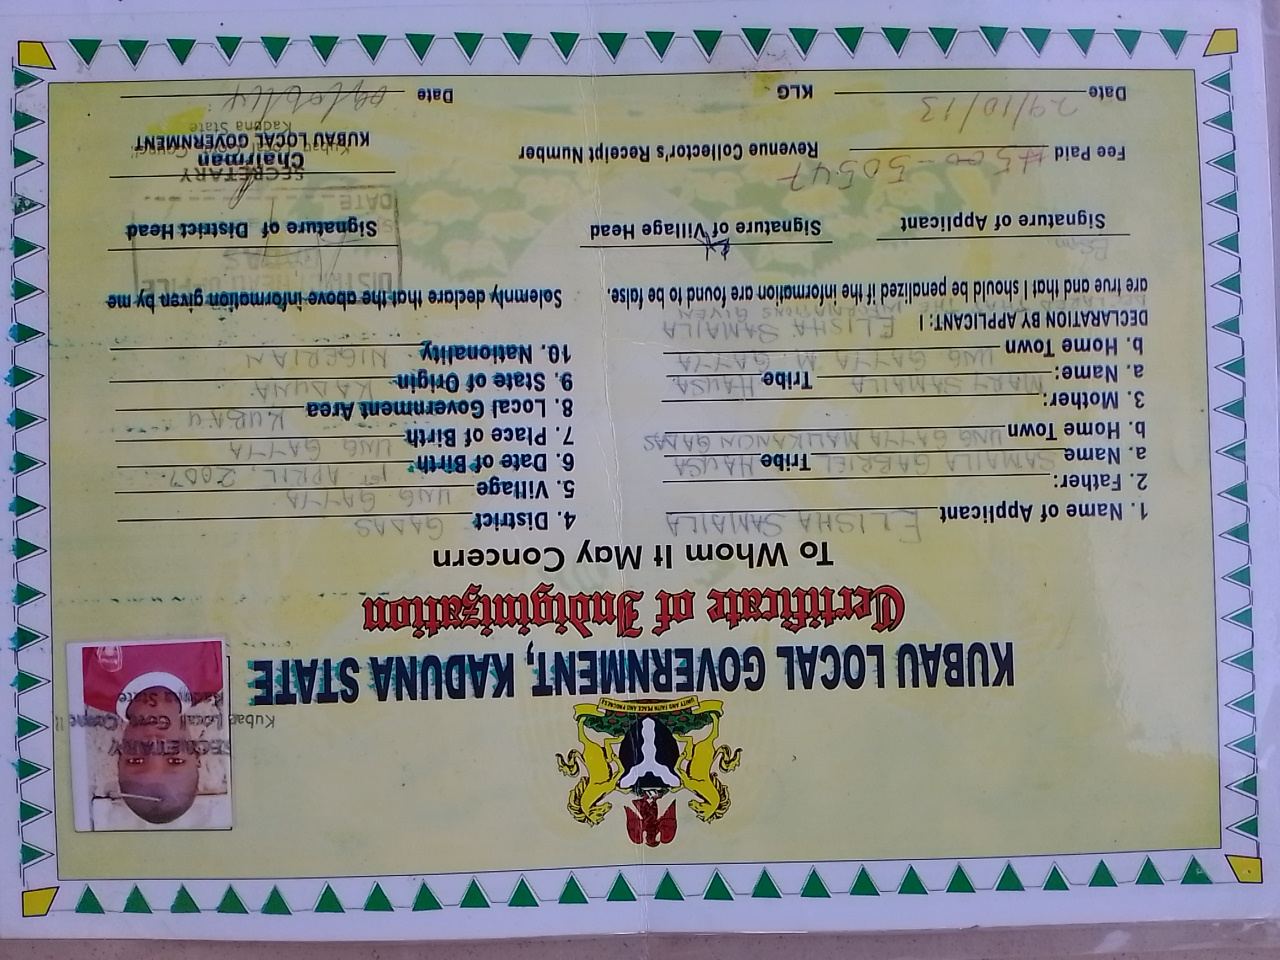 UNITY AND FAITH PEACE AND PROGRESS
KUBAU LOCAL GOVERNMENT, KADUNA STATE
Certificate of Indiginization
To Whom It May Concern
SECRETARY
Kubau Local Govt. Council
Kaduna State
1. Name of Applicant ELISHA SAMAILA
2. Father:
a. Name SAMAILA GABRIEL Tribe HAUSA
b. Home Town UNG GAYYA MALIKANCIN GADAS
3. Mother:
a. Name: MARY SAMAILA Tribe HAUSA
b. Home Town UNG GAYYA M. GAYYA
4. District GADAS
5. Village UNG GAYYA
6. Date of Birth 1ST APRIL, 2007.
7. Place of Birth UNG GAYYA
8. Local Government Area KUBAU
9. State of Origin KADUNA
10. Nationality NIGERIAN
DECLARATION BY APPLICANT: I ELISHA SAMAILA
Solemnly declare that the above information given by me
are true and that I should be penalized if the information are found to be false.
DISTRICT HEAD OFFICE
GADAS
DATE
Signature of Applicant
Signature of Village Head
Signature of District Head
Fee Paid #500 - 50547
Revenue Collector's Receipt Number
SECRETARY
Chairman
KUBAU LOCAL GOVERNMENT
Kubau Local Govt. Council
Kaduna State
Date 29/10/13
KLG
Date 09/06/14